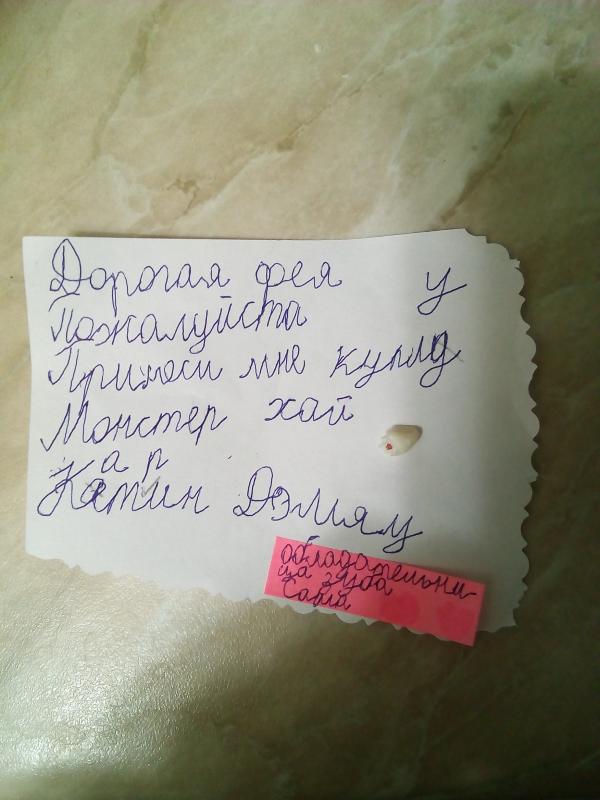 Дорогая фея
Пожалуйста
Приноси мне куклу
Монстер хай
Катрин Дэмяу
обладательни-
ца зуба
Савia